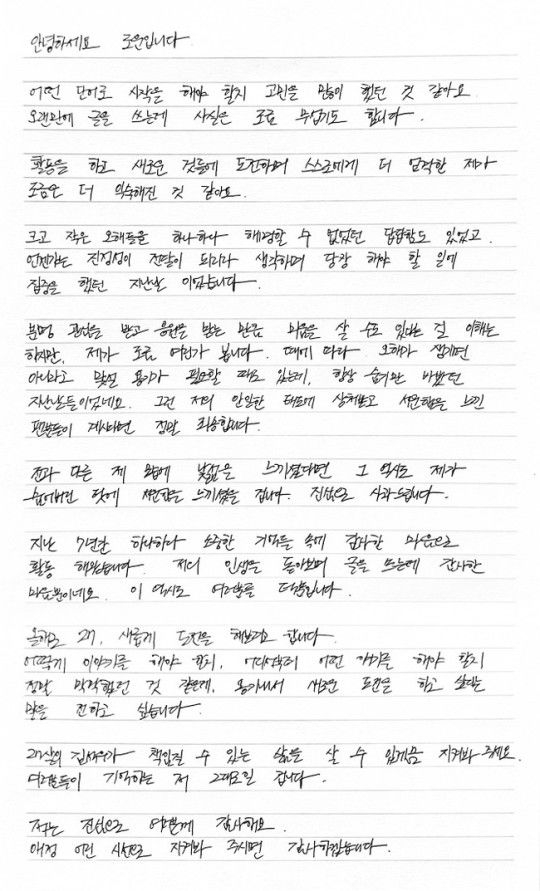 안녕하세요 로운입니다.
어떤 단어로 시작을 해야 할지 고민을 많이 했던 것 같아요.
오랜만에 글을 쓰는데 사실은 조금 무섭기도 합니다.
활동을 하고 새로운 것들에 도전하며 스스로에게 더 엄격한 제가
조금은 더 익숙해진 것 같아요.
크고 작은 오해들을 하나하나 해명할 수 없었던 답답함도 있었고
언젠가는 진정성이 전달이 되리라 생각하며 당장 해야 할 일에
집중을 했던 지난날 이었습니다.
분명 관심을 받고 응원을 받는 만큼 미움을 살 수도 있다는 걸 이해는
하지만, 제가 조금 여린가 봅니다. 때에 따라 오해가 생기면
아니라고 맞설 용기가 필요할 때도 있는데, 항상 숨기만 바빴던
지난날들이었네요. 그런 저의 안일한 태도에 상처받고 서운함을 느낀
팬분들이 계시다면 정말 죄송합니다.
전과 다른 제 모습에 낯섦을 느끼셨다면 그 역시도 제가
숨어버린 탓에 서운함을 느끼셨을 겁니다. 진심으로 사과드립니다.
지난 7년간 하나하나 소중한 기억들 속에 감사한 마음으로
활동 해왔습니다. 저의 인생을 돌아보며 글을 쓰는데 감사한
마음뿐이네요. 이 역시도 여러분들 덕분입니다.
올해로 27, 새롭게 도전을 해보려고 합니다.
어떻게 이야기를 해야 할지, 어디서부터 어떤 얘기를 해야 할지
정말 막막했던 것 같은데, 용기내서 새로운 도전을 하고 싶다는
말을 전하고 싶습니다.
27살의 김석우가 책임질 수 있는 삶을 살 수 있게끔 지켜봐 주세요.
여러분들이 기억하는 저 그대로일 겁니다.
저는 진심으로 여러분께 감사해요.
애정 어린 시선으로 지켜봐 주시면 감사하겠습니다.